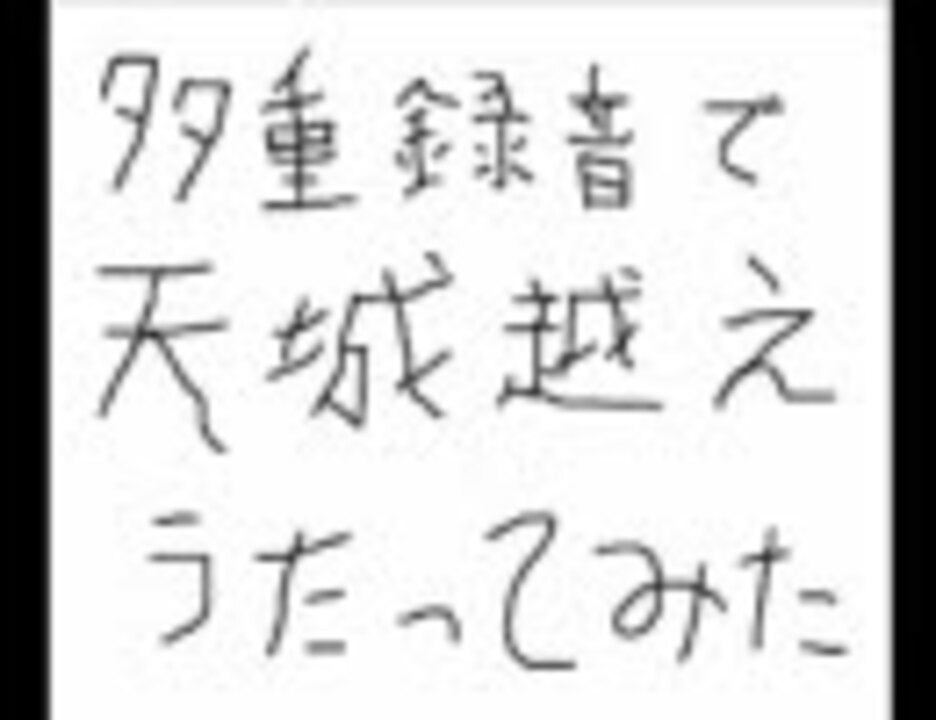 多重録音で
天城越え
うたってみた